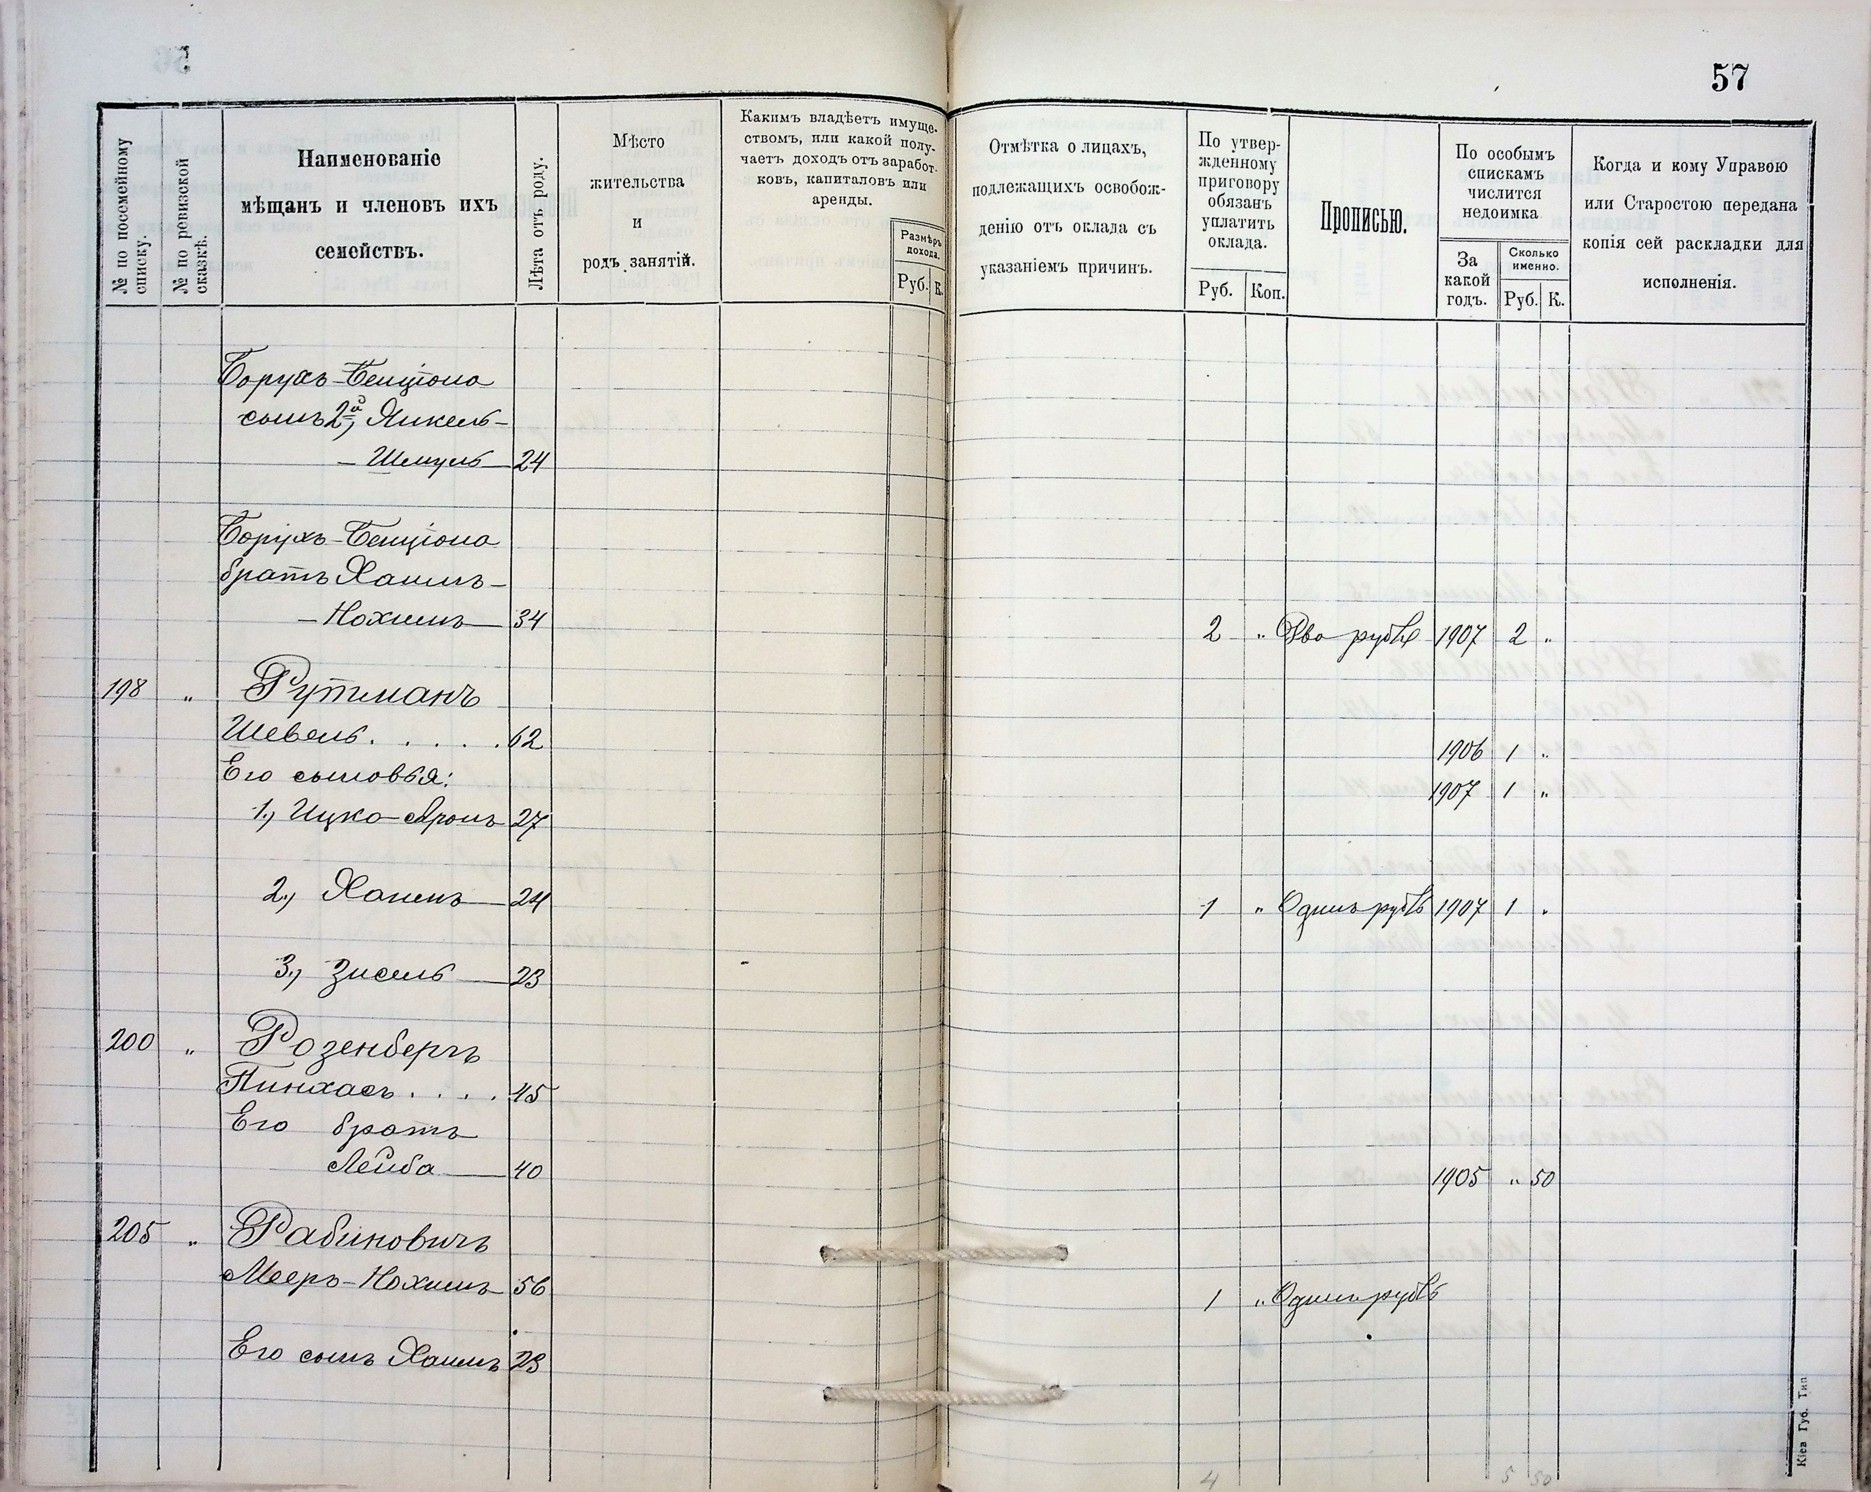 57
№ по посемейному
списку.
№ по ревизской
сказкѣ.
Наименованіе
мѣщанъ и членовъ ихъ
семействъ.
Лѣта отъ роду.
Мѣсто
жительства
и
родъ занятій.
Какимъ владѣетъ имуще-
ствомъ, или какой полу-
чаетъ доходъ отъ заработ-
ковъ, капиталовъ или
аренды.
Размѣръ
дохода.
Руб. К.
Отмѣтка о лицахъ,
подлежащихъ освобож-
денію отъ оклада съ
указаніемъ причинъ.
По утвер-
жденному
приговору
обязанъ
уплатить
оклада.
Руб. Коп.
Прописью.
По особымъ
спискамъ
числится
недоимка
За
какой
годъ.
Сколько
именно.
Руб. К.
Когда и кому Управою
или Старостою передана
копія сей раскладки для
исполненія.
Борухъ-Бенціона
сынъ 2й, Янкель-
- Шмуль 24
Борухъ-Бенціона
братъ Хаимъ-
- Нохимъ 34 2 " Два рубля 1907 2 "
198 " Рутманъ
Шевель . . . . . 62 1906 1 "
Его сыновья: 1907 1 "
1, Ицко-Аронъ 27
2, Хаимъ 24 1 " Одинъ рубль 1907 1 "
3, Зисель 23
200 " Розенбергъ
Пинхасъ . . . . 45
Его братъ
Лейба 40 1905 " 50
205 " Рабиновичъ
Мееръ-Нохимъ 56 1 " Одинъ рубль
Его сынъ Хаимъ 23
4 5 50
Кіев Губ. Тип